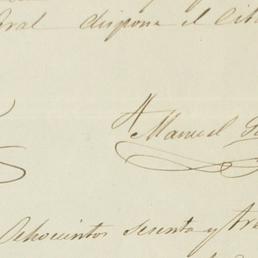 dispone el
Manuel
Ochocientos sesenta y tre